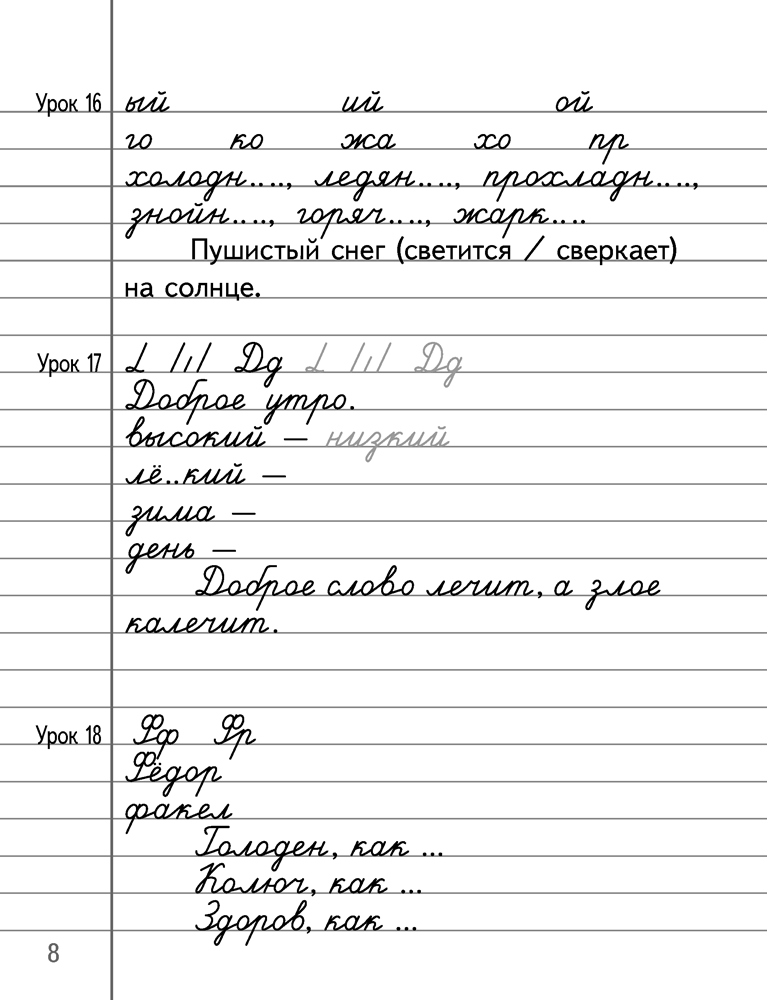 Урок 16 ый ий ой
го ко жа хо пр
холодн...., ледян...., прохладн....,
знойн...., горяч...., жарк....
Пушистый снег (светится / сверкает)
на солнце.
Урок 17 Дд Дд
Доброе утро.
высокий — низкий
лё..кий —
зима —
день —
Доброе слово лечит, а злое
калечит.
Урок 18 Фф Фр
Фёдор
факел
Голоден, как ...
Колюч, как ...
Здоров, как ...
8